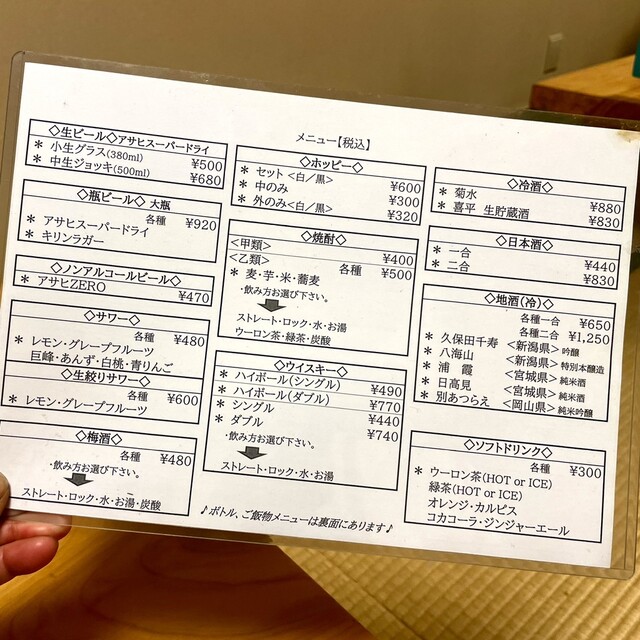 メニュー【税込】
◇生ビール◇アサヒスーパードライ
＊ 小生グラス(380ml) ¥500
＊ 中生ジョッキ(500ml) ¥680
◇瓶ビール◇ 大瓶
各種 ¥920
＊ アサヒスーパードライ
＊ キリンラガー
◇ノンアルコールビール◇
＊ アサヒZERO ¥470
◇サワー◇
各種 ¥480
＊ レモン・グレープフルーツ
巨峰・あんず・白桃・青りんご
◇生絞りサワー◇
各種 ¥600
＊ レモン・グレープフルーツ
◇梅酒◇
各種 ¥480
・飲み方お選び下さい。
ストレート・ロック・水・お湯・炭酸
◇ホッピー◇
＊ セット<白／黒> ¥600
＊ 中のみ ¥300
＊ 外のみ<白／黒> ¥320
◇焼酎◇
<甲類> ¥400
<乙類> 各種 ¥500
＊ 麦・芋・米・蕎麦
・飲み方お選び下さい。
ストレート・ロック・水・お湯
ウーロン茶・緑茶・炭酸
◇ウイスキー◇
＊ ハイボール(シングル) ¥490
＊ ハイボール(ダブル) ¥770
＊ シングル ¥440
＊ ダブル ¥740
・飲み方お選び下さい。
ストレート・ロック・水・お湯
◇冷酒◇
＊ 菊水 ¥880
＊ 喜平 生貯蔵酒 ¥830
◇日本酒◇
＊ 一合 ¥440
＊ 二合 ¥830
◇地酒(冷)◇
各種一合 ¥650
各種二合 ¥1,250
＊ 久保田千寿 <新潟県> 吟醸
＊ 八海山 <新潟県> 特別本醸造
＊ 浦 霞 <宮城県> 純米酒
＊ 日高見 <宮城県> 純米酒
＊ 別あつらえ <岡山県> 純米吟醸
◇ソフトドリンク◇
各種 ¥300
＊ ウーロン茶(HOT or ICE)
緑茶(HOT or ICE)
オレンジ・カルピス
コカコーラ・ジンジャーエール
♪ボトル、ご飯物メニューは裏面にあります♪